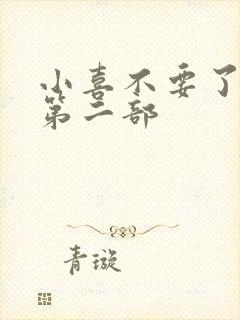 小喜不要了
第二部
青璇